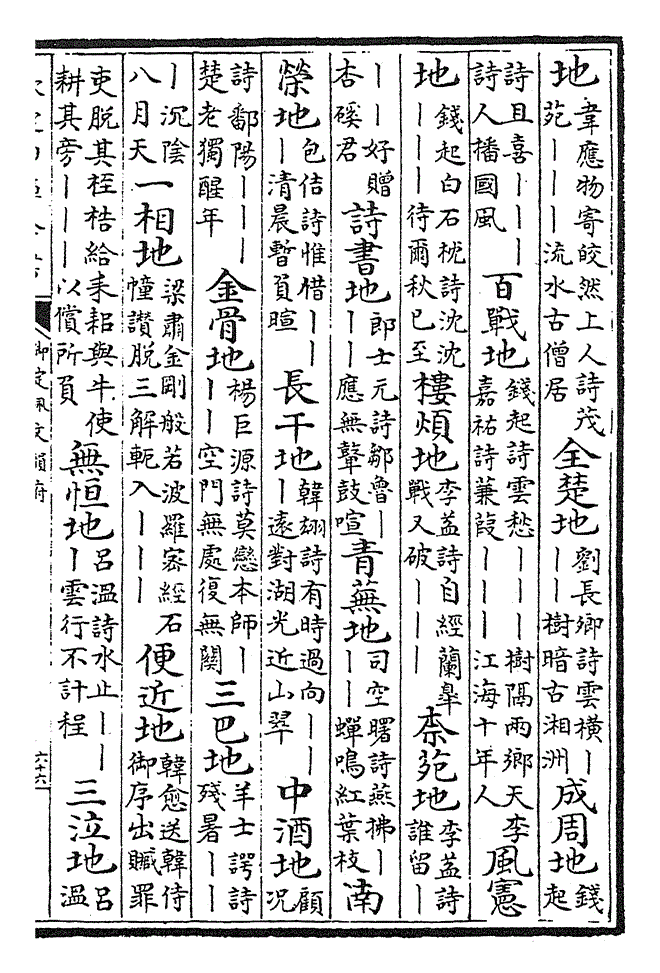 地韋應物寄皎然上人詩茂苑｜｜｜流水古僧居全楚地劉長卿詩雲橫｜｜｜樹暗古湘洲成周地錢起
詩且喜｜｜｜詩人播國風百戰地錢起詩雲愁｜｜｜樹隔兩鄉天李嘉祐詩蒹葭｜｜｜江海十年人風憲
地錢起白石枕詩沈沈｜｜｜待爾秋已至樓煩地李益詩自經蘭臯戰又破｜｜｜柰苑地李益詩誰留｜
｜｜好贈杏磎君詩書地郎士元詩鄒魯｜｜｜應無鼙鼓喧青蕪地司空曙詩燕拂｜｜｜蟬鳴紅葉枝南
榮地包佶詩惟借｜｜｜清晨暫負暄長干地韓翃詩有時過向｜｜｜遠對湖光近山翠中酒地顧況
詩鄱陽｜｜｜楚老獨醒年金骨地楊巨源詩莫戀本師｜｜｜空門無處復無關三巴地羊士諤詩殘暑｜｜
｜沉陰八月天一相地梁肅金剛般若波羅宻經石幢讚脱三解軛入｜｜｜便近地韓愈送韓侍御序出贓罪
吏脱其桎梏給耒耜與牛使耕其旁｜｜｜以償所負無恒地呂溫詩水止｜｜｜雲行不計程三泣地呂溫
御定佩文韻府
六十六